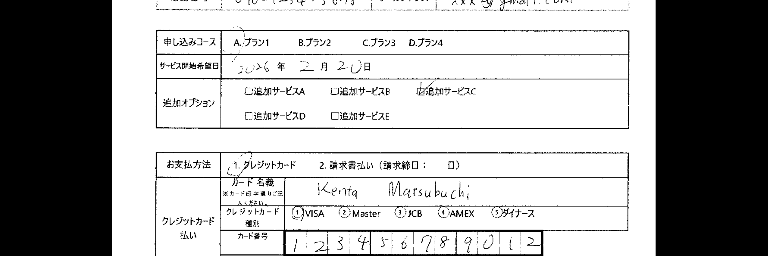 申し込みコース A.プラン1 B.プラン2 C.プラン3 D.プラン4
サービス開始希望日 2026 年 2 月 20 日
追加オプション □追加サービスA □追加サービスB ☑追加サービスC
□追加サービスD □追加サービスE
お支払方法 1.クレジットカード 2.請求書払い(請求締日: 日)
クレジットカード払い
カード名義 Kenta Matsubuchi
クレジットカード種別 ①VISA ②Master ③JCB ④AMEX ⑤ダイナース
カード番号 1 2 3 4 5 6 7 8 9 0 1 2